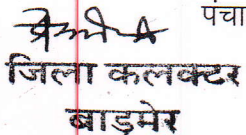 पंचा
जिला कलक्टर
बाड़मेर